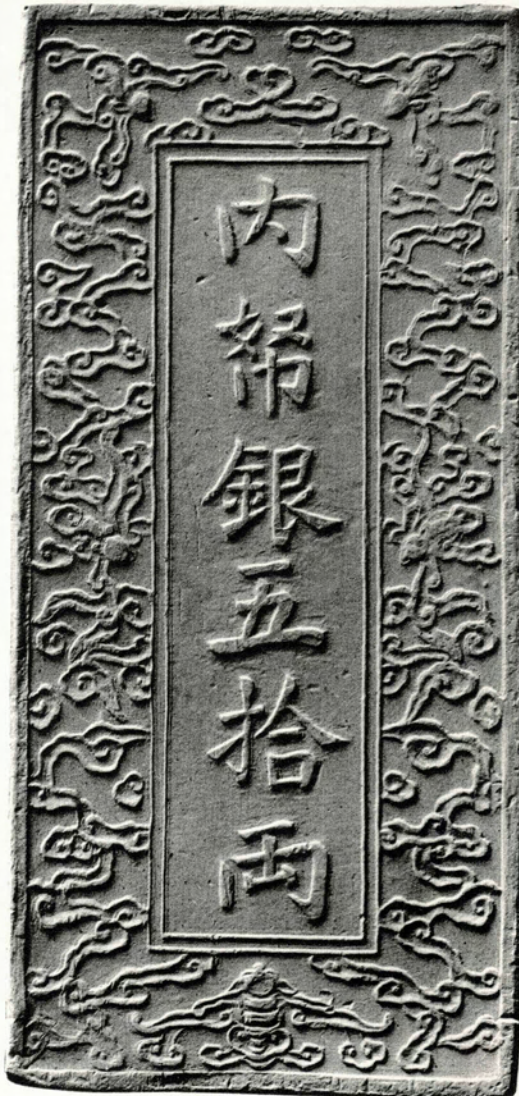 内帑銀五拾両